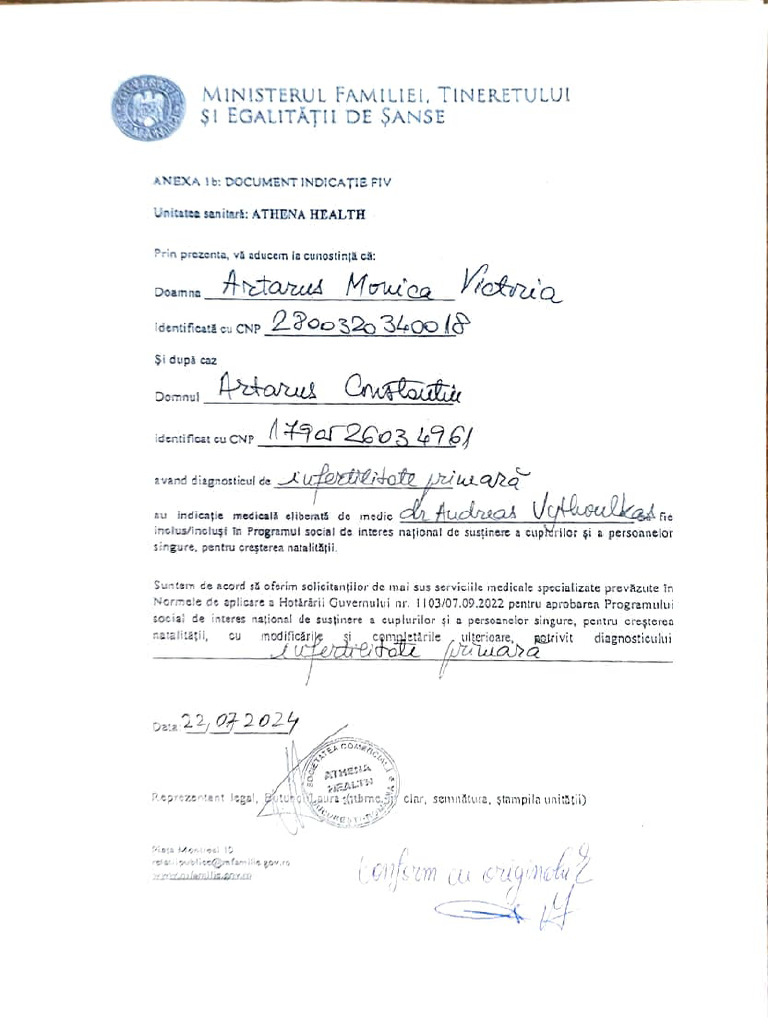 MINISTERUL FAMILIEI, TINERETULUI
ȘI EGALITĂȚII DE ȘANSE
ANEXA 1b: DOCUMENT INDICAȚIE FIV
Unitatea sanitară: ATHENA HEALTH
Prin prezenta, vă aducem la cunostință că:
Doamna Artarus Monica Victoria
identificată cu CNP 2800320340018
Și după caz
Domnul Artarus Constantin
identificat cu CNP
avand diagnosticul de infertilitate primară
au indicație medicală eliberată de medic dr Andreas Vythoulkas fie
inclus/incluși în Programul social de interes național de susținere a cuplurilor și a persoanelor
singure, pentru creșterea natalității.
Suntem de acord să oferim solicitanților de mai sus serviciile medicale specializate prevăzute în
Normele de aplicare a Hotărârii Guvernului nr. 1103/07.09.2022 pentru aprobarea Programului
social de interes național de susținere a cuplurilor și a persoanelor singure, pentru creșterea
natalității, cu modificările și completările ulterioare, potrivit diagnosticului
infertilitate primară
Data: 22,07 2024
SOCIETATEA COMERCIALĂ
ATHENA
HEALTH
BUCUREȘTI-ROMÂNIA
Reprezentant legal, Laura clar, semnătura, ștampila unității)
Piața Montreal 10
relatiipublice@mfamilie.gov.ro
www.mfamilie.gov.ro
Conform cu originalul